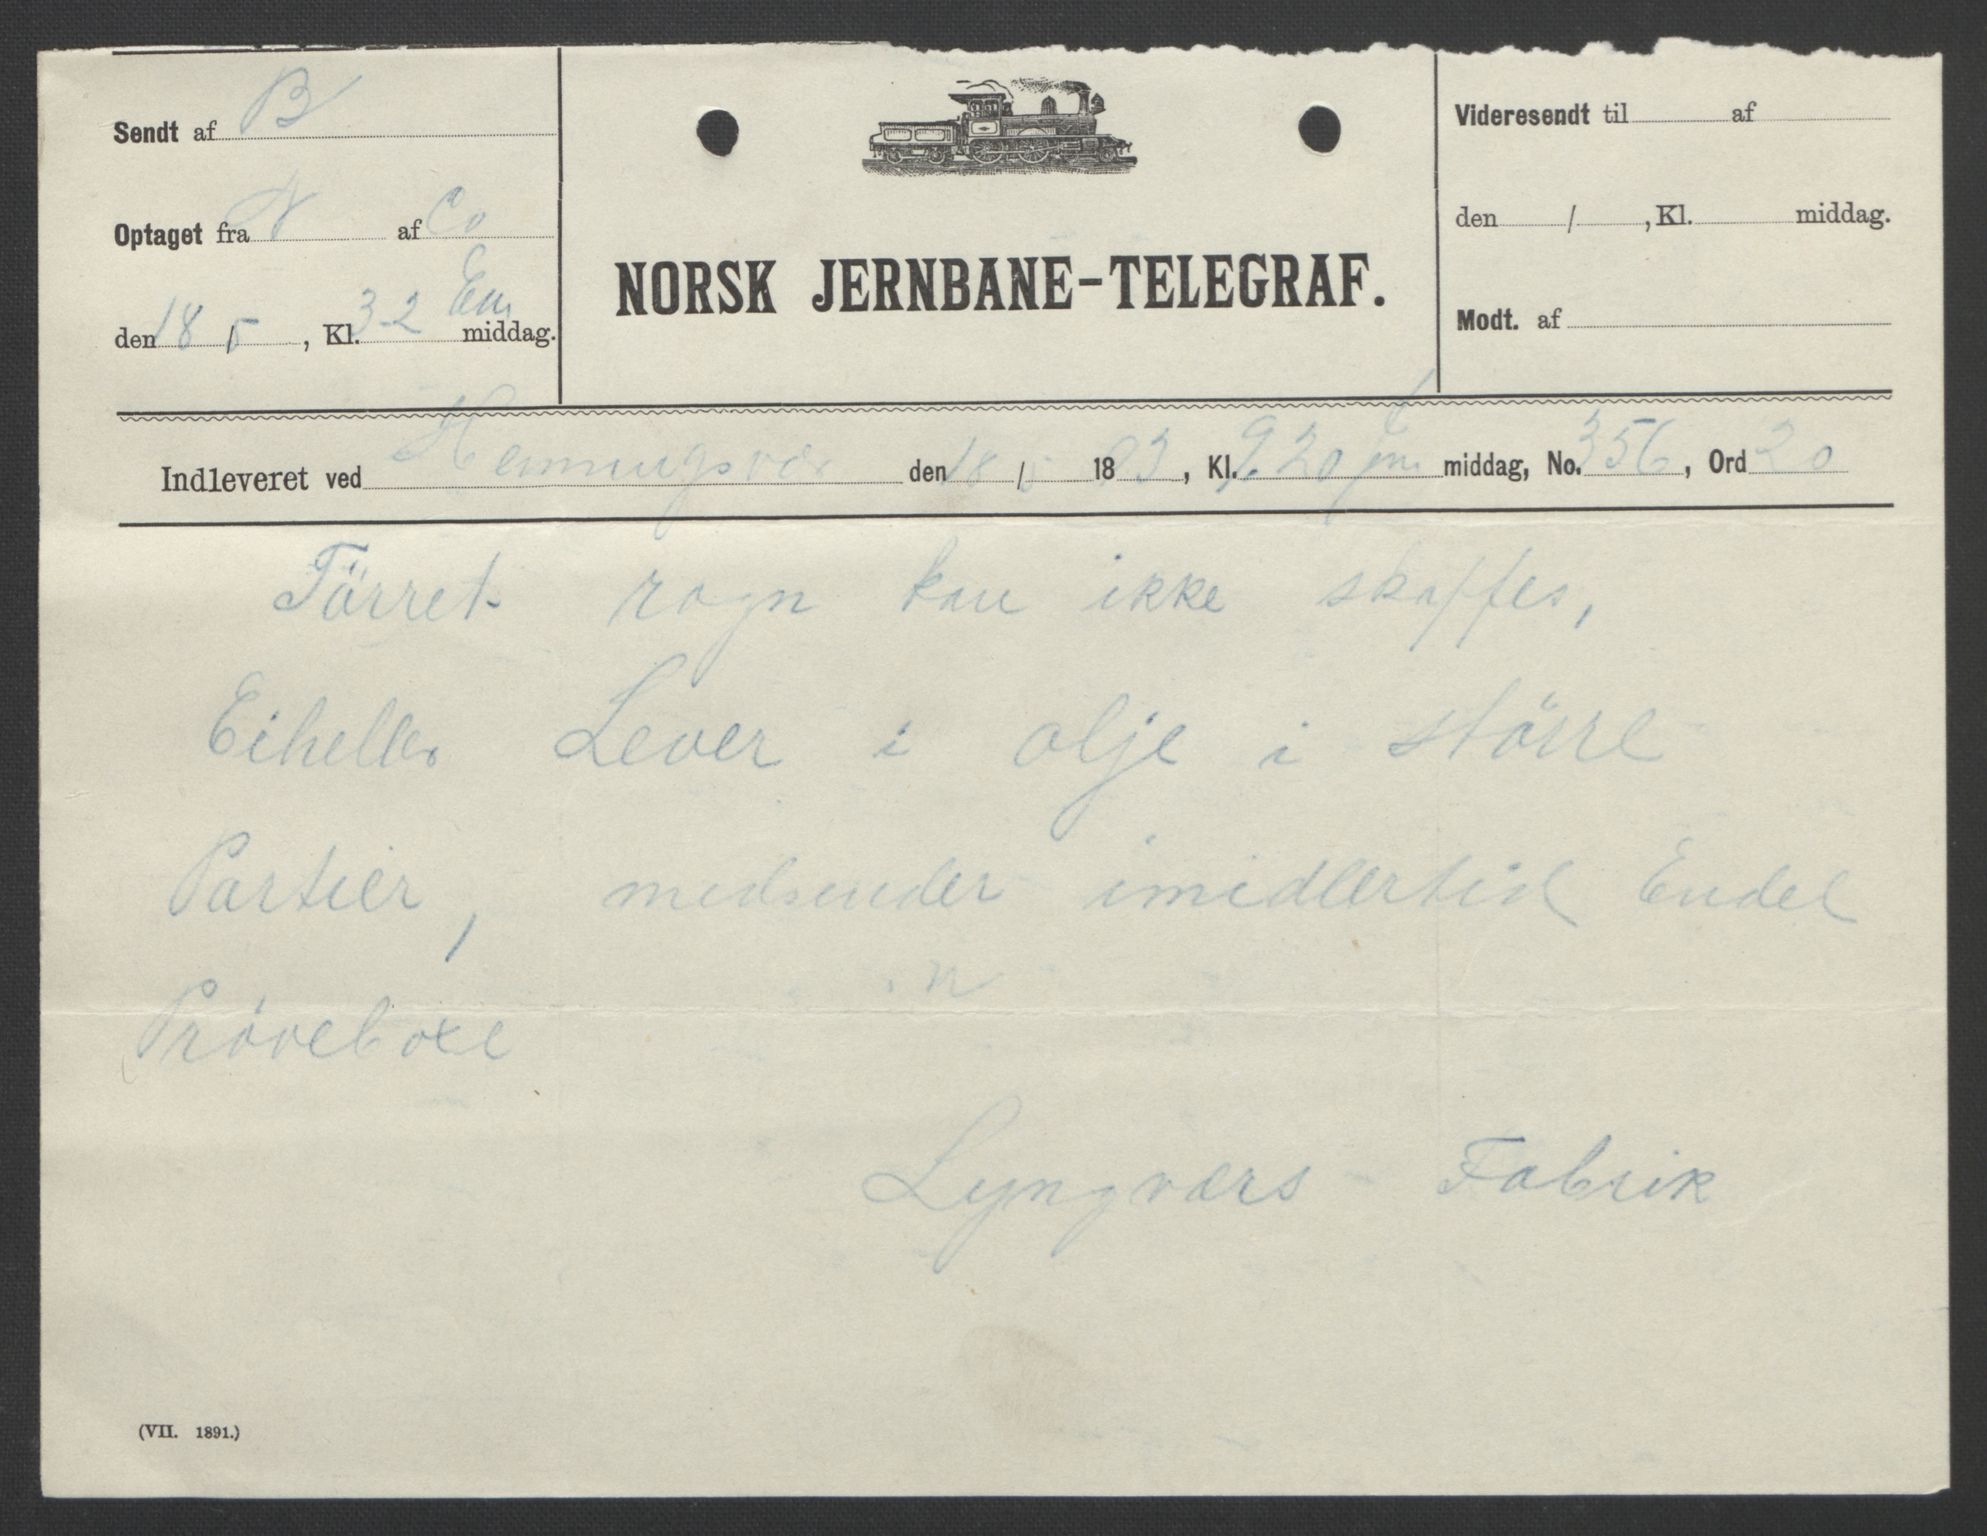 Sendt af B
Optaget fra N af Co
den 18/5, Kl. 3-2 Em middag.
NORSK JERNBANE-TELEGRAF.
Videresendt til af
den / , Kl. middag.
Modt. af
Indleveret ved Henningsvær den 18/5 18 93, Kl. 9.20 fm middag, No. 356, Ord 20
Törret rogn kan ikke skaffes,
Eiheller Lever i olje i större
Partier, medsender imidlertid Endel
Pröveboxe
Lyngværs Fabrik
(VII. 1891.)